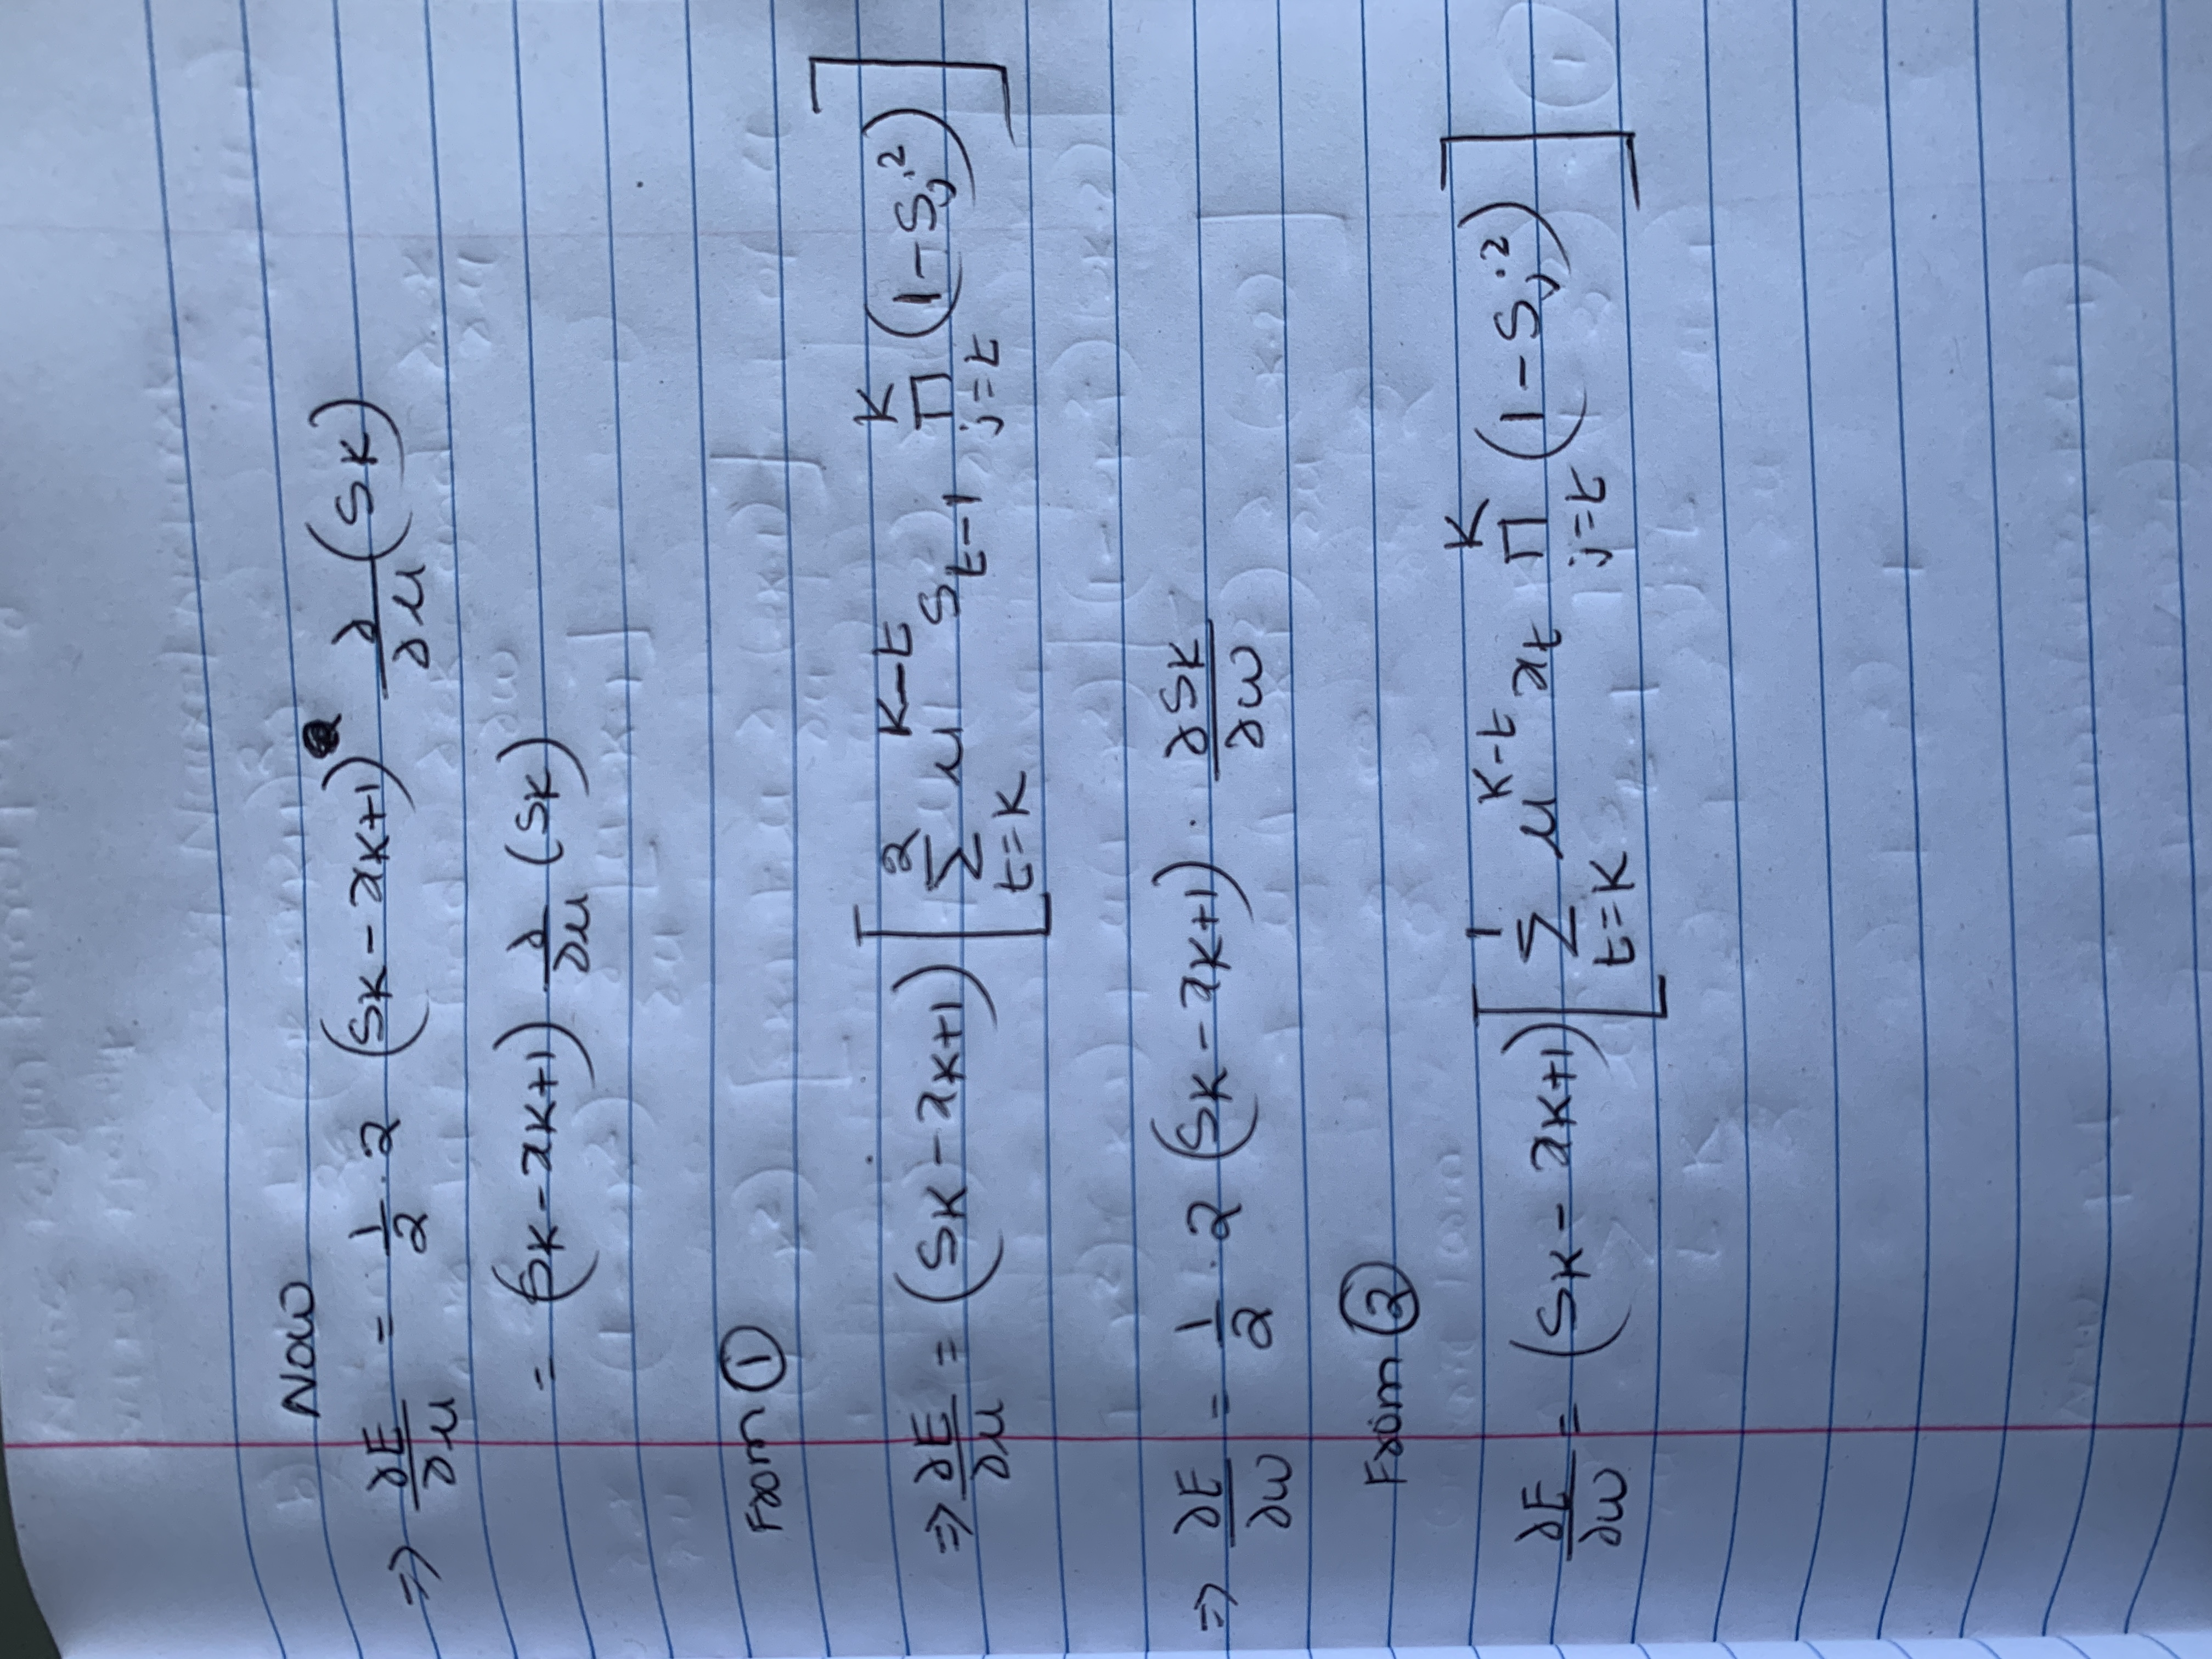 Now
⇒ ∂E/∂u = 1/2 · 2 (SK - xK+1) ∂/∂u (SK)
= (SK - xK+1) ∂/∂u (SK)
From ①
⇒ ∂E/∂u = (SK - xK+1) [ Σ_{t=K}^{2} u^{K-t} S_{t-1} Π_{j=t}^{K} (1 - S_j^2) ]
⇒ ∂E/∂w = 1/2 · 2 (SK - xK+1) · ∂SK/∂w
From ②
∂E/∂w = (SK - xK+1) [ Σ_{t=K}^{1} u^{K-t} x_t Π_{j=t}^{K} (1 - S_j^2) ]